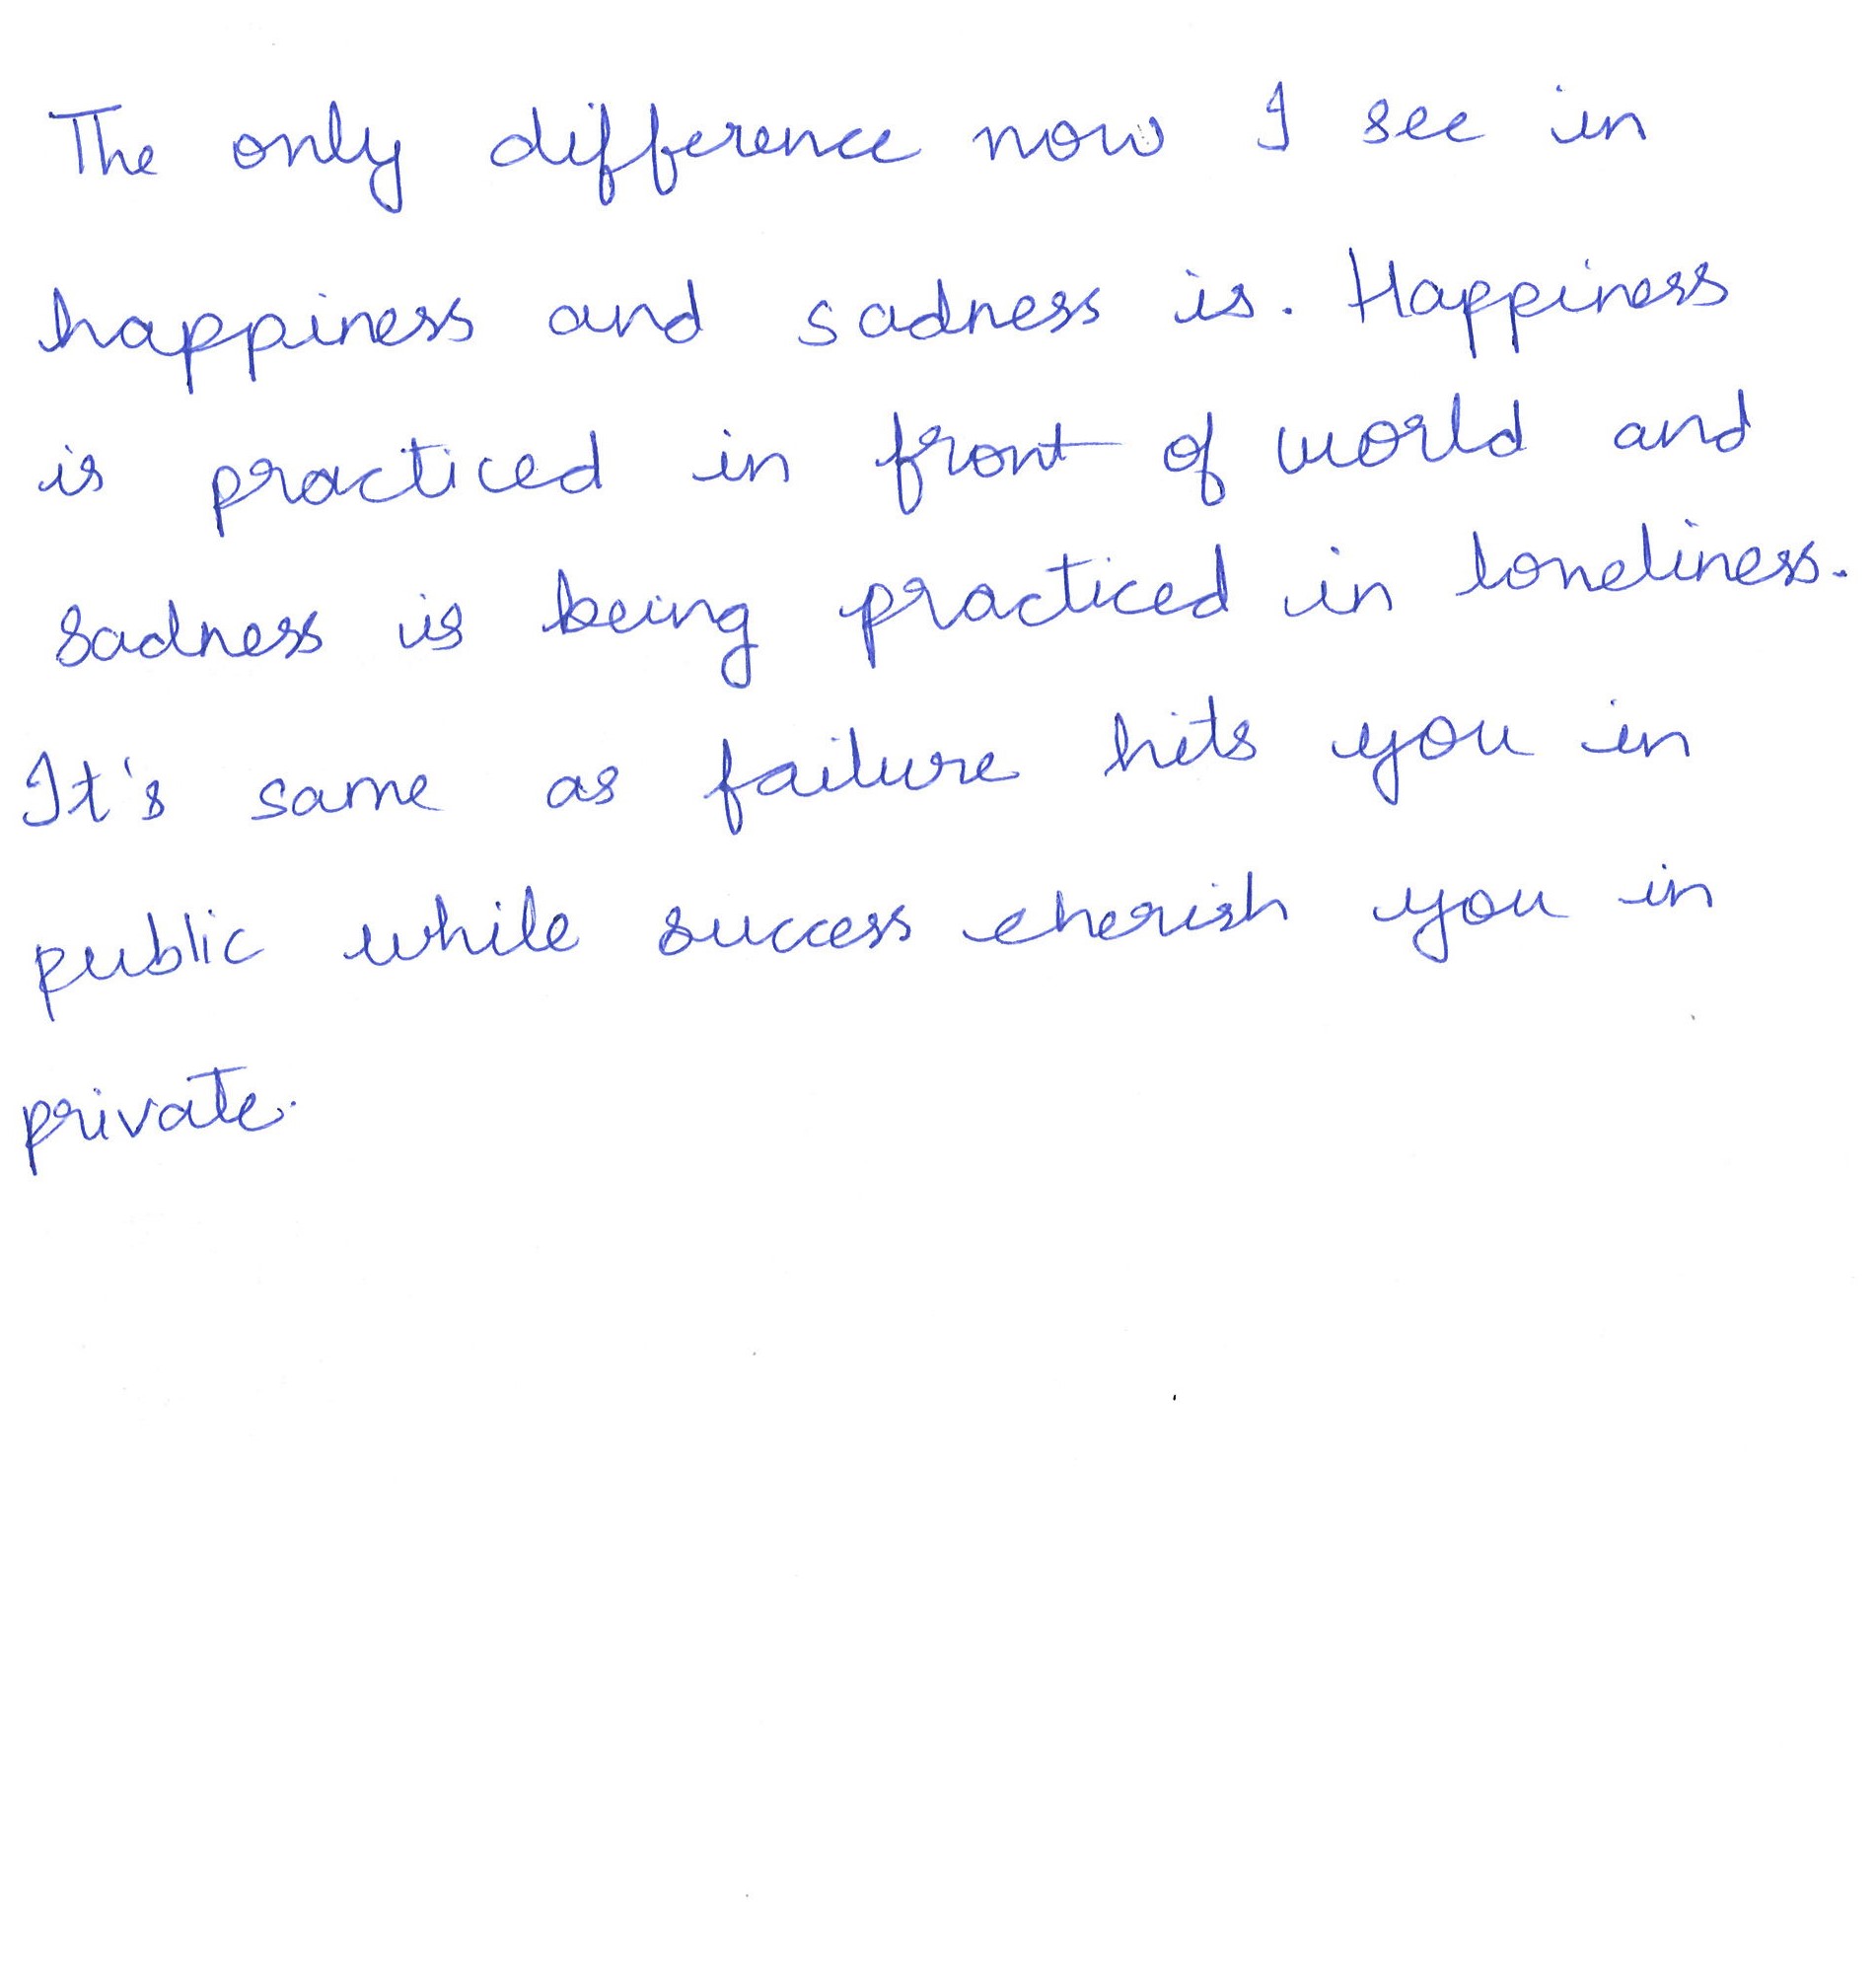 The only difference now I see in
happiness and sadness is. Happiness
is practiced in front of world and
sadness is being practiced in loneliness.
It's same as failure hits you in
public while success cherish you in
private.